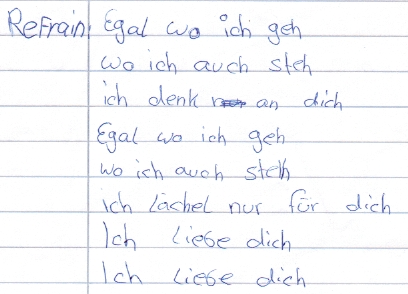 Refrain: Egal wo ich geh
wo ich auch steh
ich denk an dich
Egal wo ich geh
wo ich auch steh
ich lächel nur für dich
Ich liebe dich
Ich liebe dich